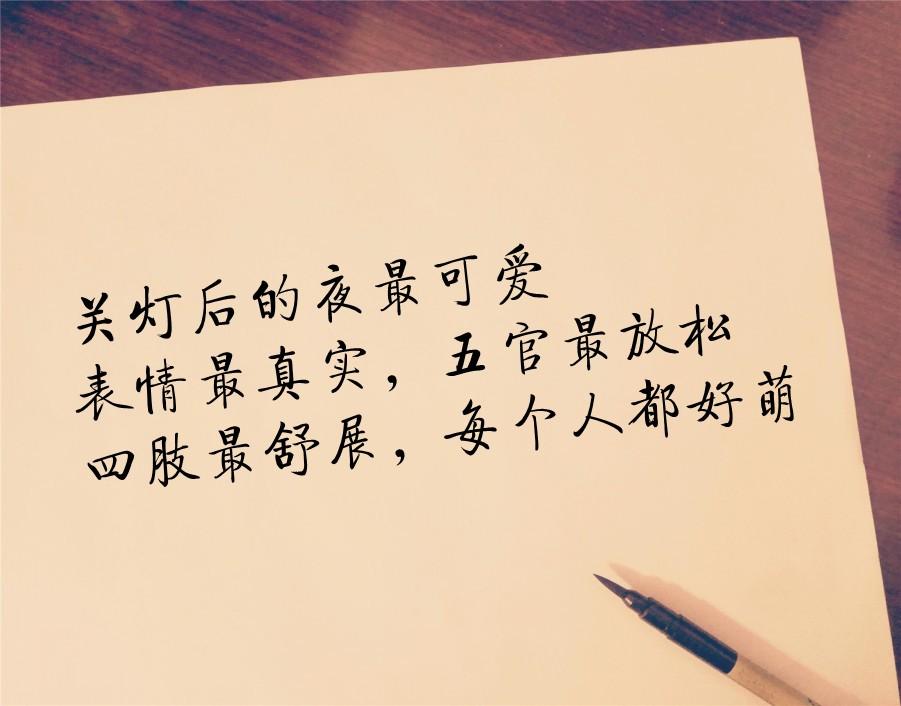 关灯后的夜最可爱
表情最真实，五官最放松
四肢最舒展，每个人都好萌